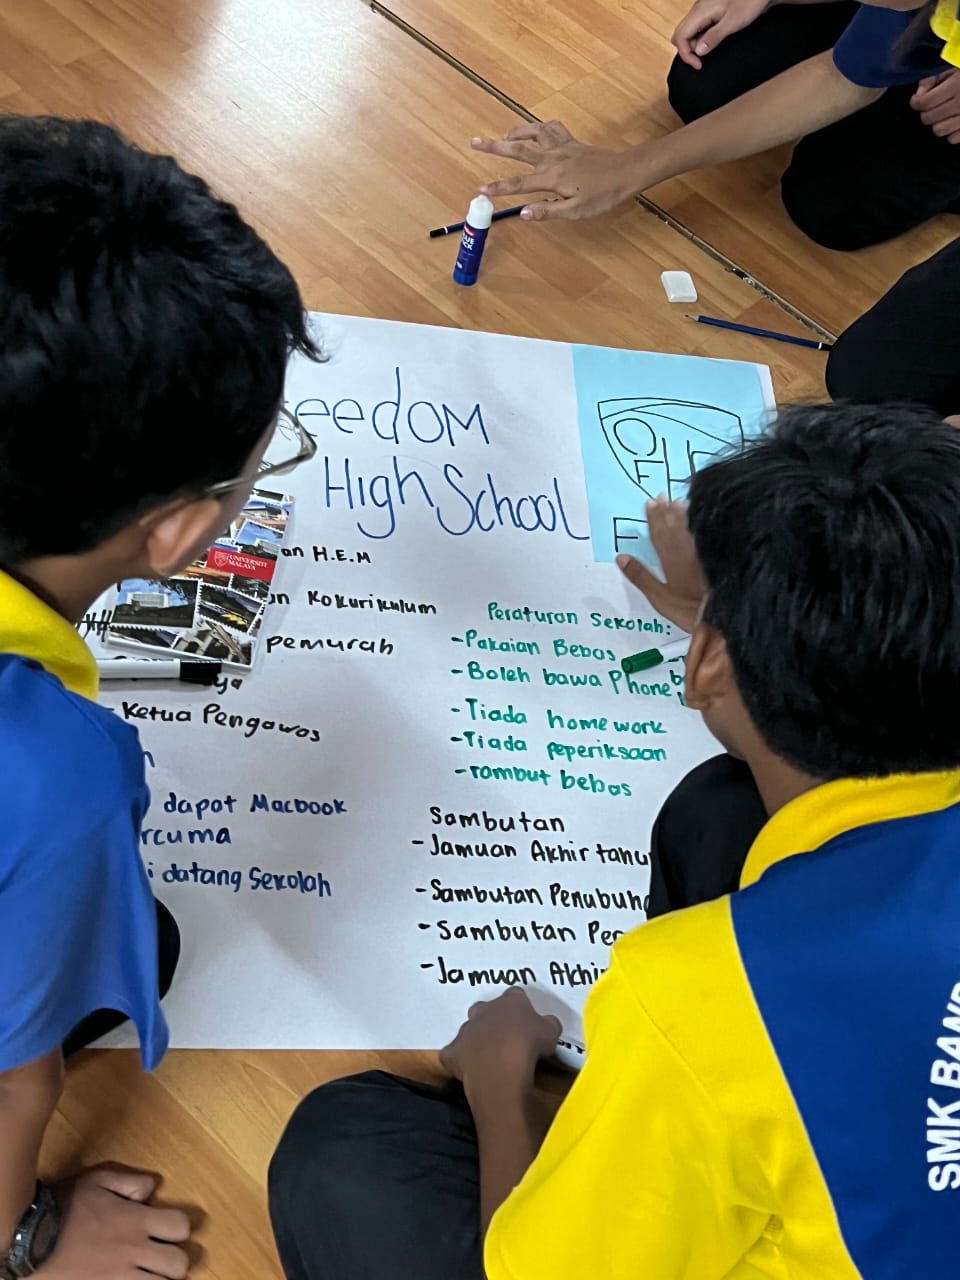 eedom
High School
an H.E.M
Kokurikulum
pemurah
ya
- Ketua Pengawas
dapat Macbook
rcuma
i datang sekolah
Peraturan sekolah:
- Pakaian Bebas
- Boleh bawa Phone
- Tiada homework
- Tiada peperiksaan
- rambut bebas
Sambutan
- Jamuan Akhir tahu
- Sambutan Penubuha
- Sambutan Per
- Jamuan Akhir
UNIVERSITI
MALAYA
GLUE
STICK
SMK BAND